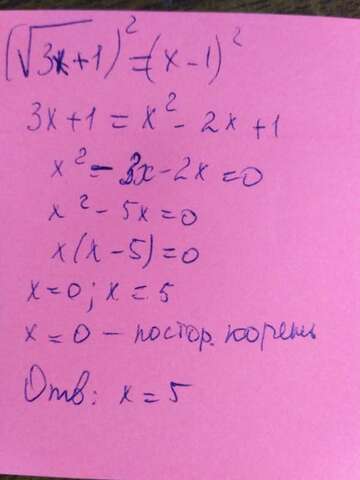 (√3x+1)² = (x-1)²
3x+1 = x² - 2x +1
x² - 3x - 2x = 0
x² - 5x = 0
x(x-5) = 0
x=0; x = 5
x=0 - постор. корень
Отв: x = 5